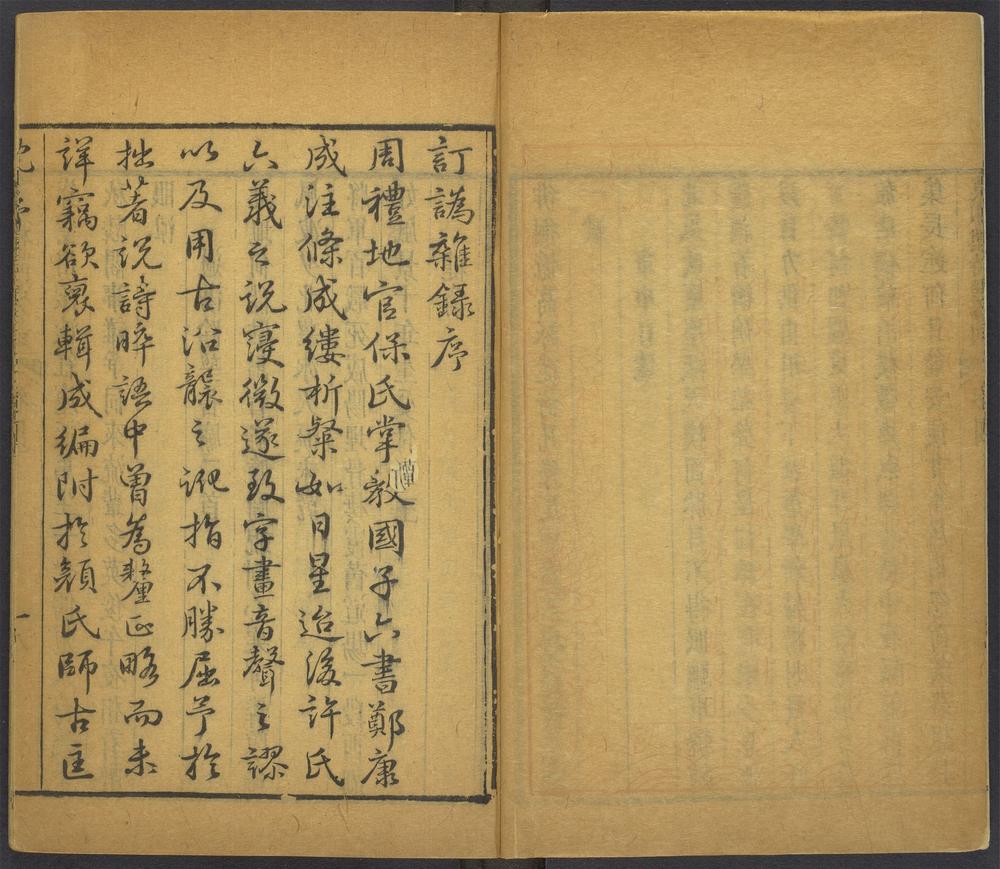 訂譌雜録序
周禮地官保氏掌教國子六書鄭康
成注條成縷析粲如日星迨後許氏
六義之説寖微遂致字畫音聲之謬
以及用古沿襲之訛指不勝屈予於
拙著説詩晬語中曾為釐正略而未
詳竊欲裒輯成編附於顔氏師古匡